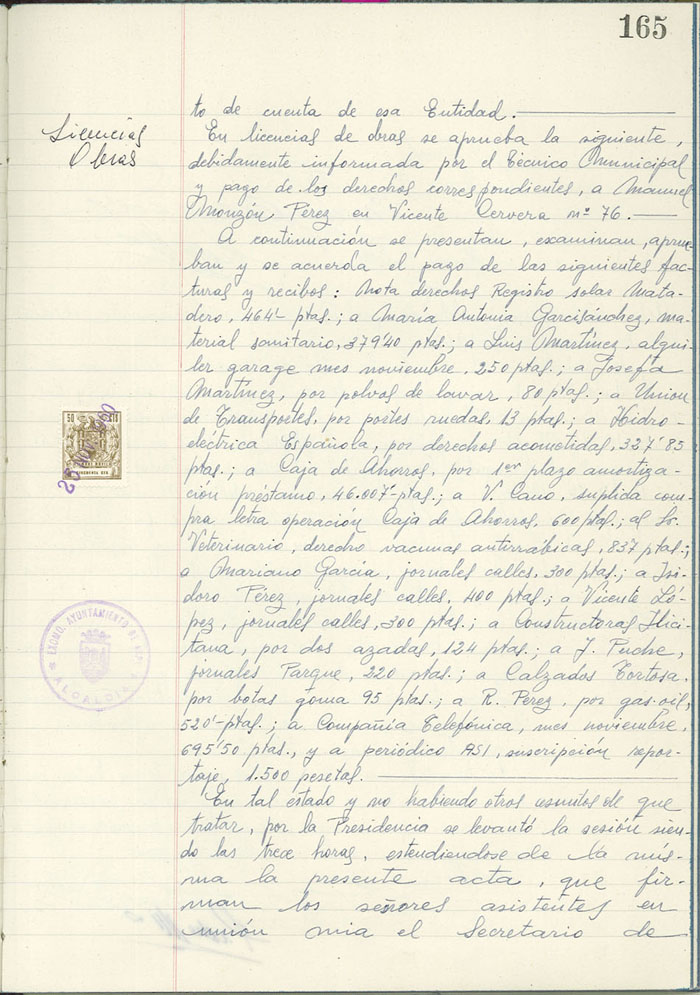 165
Licencias
Obras
to de cuenta de esa Entidad.
En licencias de obras se aprueba la siguiente,
debidamente informada por el Técnico Municipal
y pago de los derechos correspondientes, a Manuel
Monzón Pérez en Vicente Cervera nº 76.
A continuación se presentan, examinan, aprue-
ban y se acuerda el pago de las siguientes fac-
turas y recibos: Nota derechos Registro solar Mata-
dero, 464'- ptas.; a María Antonia Garcisánchez, ma-
terial sanitario, 379'40 ptas.; a Luis Martínez, alqui-
ler garage mes noviembre, 250 ptas.; a Josefa
Martínez, por polvos de lavar, 80 ptas.; a Union
de Transportes, por portes ruedas, 13 ptas.; a Hidro-
eléctrica Española, por derechos acometidas, 327'85
ptas.; a Caja de Ahorros, por 1er plazo amortiza-
ción préstamo, 46.007'-ptas.; a V. Cano, suplida com-
pra letra operación Caja de Ahorros, 600 ptas.; al Sr.
Veterinario, derecho vacunas antirrábicas, 837 ptas.;
a Mariano García, jornales calles, 300 ptas.; a Isi-
doro Pérez, jornales calles, 400 ptas.; a Vicente Ló-
pez, jornales calles, 300 ptas.; a Constructoras Ilici-
tana, por dos azadas, 124 ptas.; a J. Puche,
jornales Parque, 220 ptas.; a Calzados Tortosa,
por botas goma 95 ptas.; a R. Pérez, por gas-oil,
520'-ptas.; a Compañía Telefónica, mes noviembre,
695'50 ptas., y a periódico ASI, suscripción repor-
taje, 1.500 pesetas.
En tal estado y no habiendo otros asuntos de que
tratar, por la Presidencia se levantó la sesión sien-
do las trece horas, estendiendose de la mis-
ma la presente acta, que fir-
man los señores asistentes en
unión mia el Secretario de
50 CTS
EXCMO. AYUNTAMIENTO DE
ALCALDIA